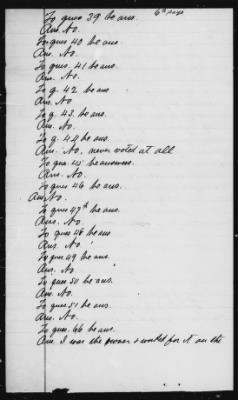 6th page
To ques 39 he ans.
Ans. No.
To ques 40 he ans.
Ans. No
To ques. 41 he ans.
Ans. No.
To q. 42 he ans
Ans. No
To q. 43. he ans.
Ans. No.
To q. 44 he ans.
Ans. No, never voted at all
To ques. 45 he answers.
Ans. No.
To ques 46 he ans.
Ans. No.
To ques 47th he ans.
Ans. No.
To ques 48 he ans
Ans. No.
To ques 49 he ans.
Ans. No
To ques 50 he ans.
Ans. No.
To ques 51 he ans.
Ans. No.
To ques. 66 he ans.
Ans. I was the owner & worked for it on the